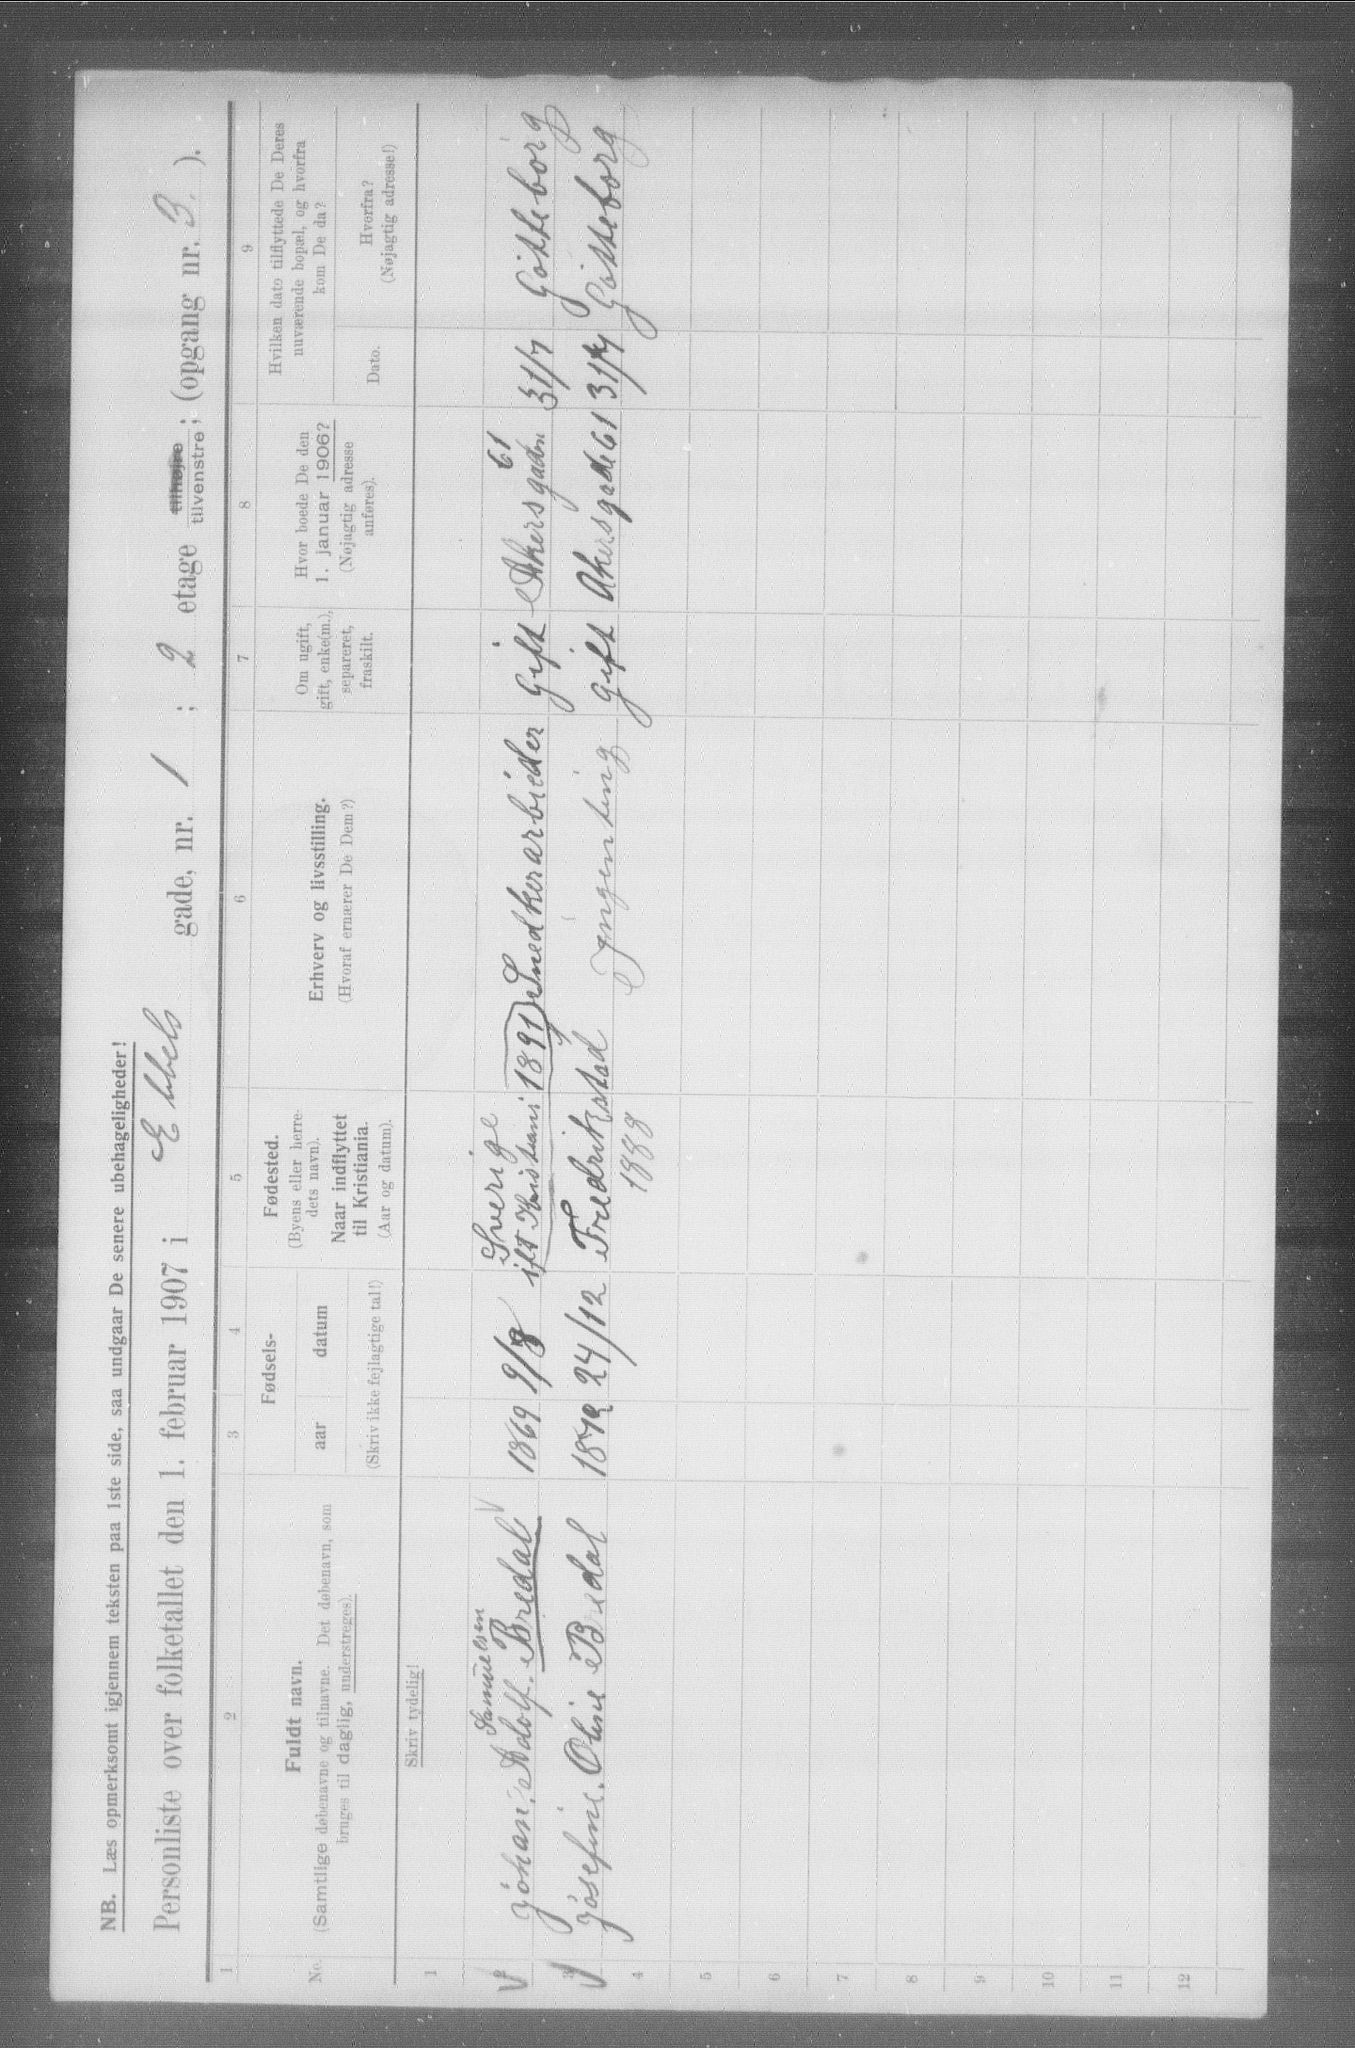 NB. Læs opmerksomt igjennem teksten paa 1ste side, saa undgaar De senere ubehageligheder!
Personliste over folketallet den 1. februar 1907 i Ebbels gade, nr. 1 ; 2 etage tilhøjre ; (opgang nr. 3 ).
tilvenstre
1 2 3 4 5 6 7 8 9
No.
Fuldt navn.
(Samtlige døbenavne og tilnavne. Det døbenavn, som
bruges til daglig, understreges).
Fødsels-
aar datum
(Skriv ikke fejlagtige tal!)
Fødested.
(Byens eller herre-
dets navn).
Naar indflyttet
til Kristiania.
(Aar og datum).
Erhverv og livsstilling.
(Hvoraf ernærer De Dem?)
Om ugift,
gift, enke(m.),
separeret,
fraskilt.
Hvor boede De den
1. januar 1906?
(Nøjagtig adresse
anføres).
Hvilken dato tilflyttede De Deres
nuværende bopæl, og hvorfra
kom De da?
Dato.
Hvorfra?
(Nøjagtig adresse!)
Skriv tydelig!
1
Samuelsen Sverige 61
2 Johan. Adolf. Bredal 1869 9/8 Kristiani 1891 Snedkerarbieder gift Akersgaden 31/7 Götteborg
3 Josefine. Oline Bredal 24/12 Fredrikstad Ingenting gift Akersgade 61 31/7 Götteborg
1888
4
5
6
7
8
9
10
11
12